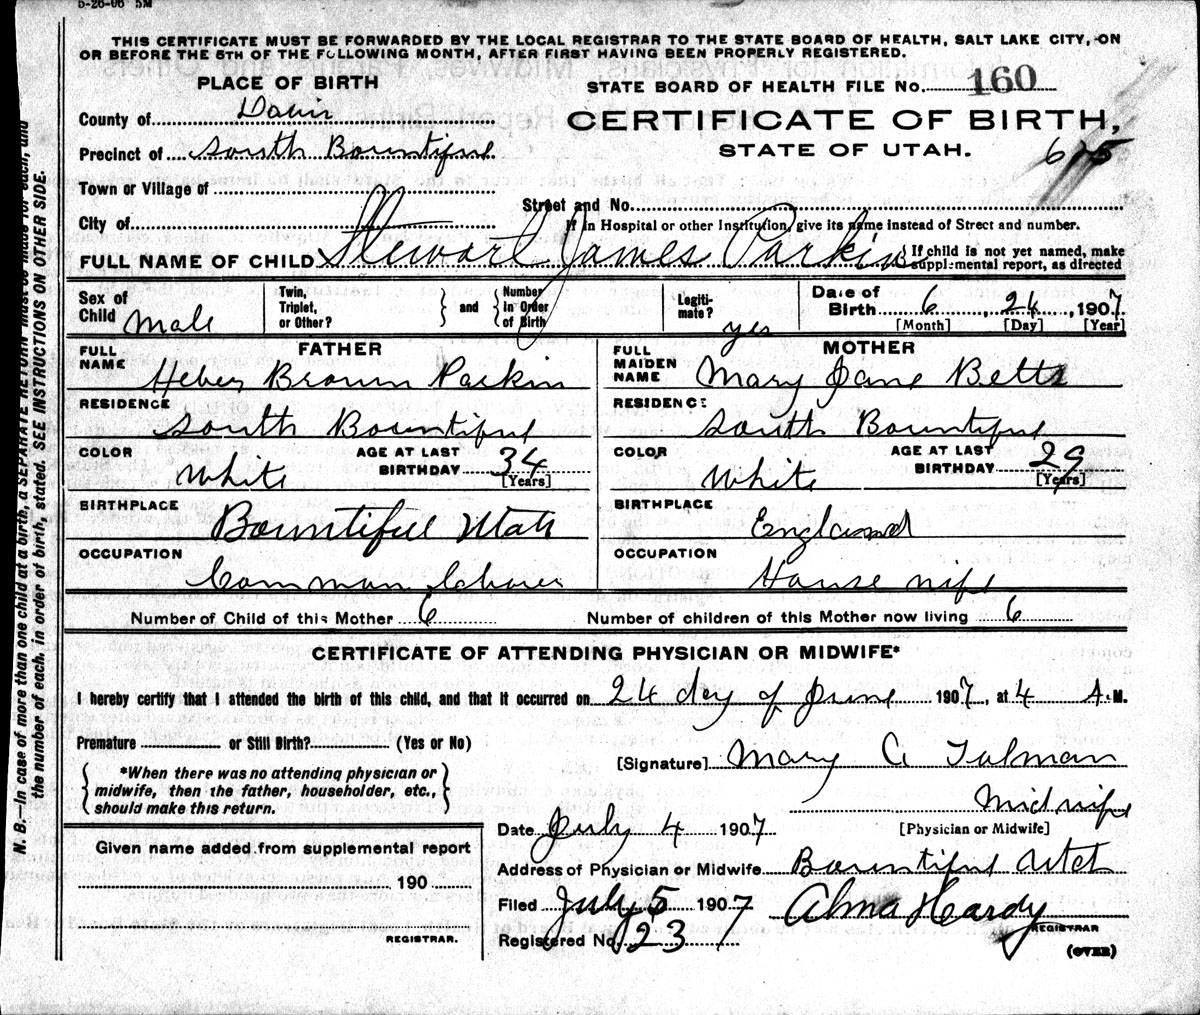 5-26-06 5M
THIS CERTIFICATE MUST BE FORWARDED BY THE LOCAL REGISTRAR TO THE STATE BOARD OF HEALTH, SALT LAKE CITY, ON
OR BEFORE THE 5TH OF THE FOLLOWING MONTH, AFTER FIRST HAVING BEEN PROPERLY REGISTERED.
PLACE OF BIRTH
STATE BOARD OF HEALTH FILE No. 160
County of Davis
CERTIFICATE OF BIRTH,
Precinct of South Bountiful
STATE OF UTAH.
Town or Village of
Street and No.
City of
If in Hospital or other Institution, give its name instead of Street and number.
FULL NAME OF CHILD Stewart James Parkin If child is not yet named, make
supplemental report, as directed
Sex of Child Male Twin, Triplet, or Other? and Number in Order of Birth Legiti-mate? yes Date of Birth 6, 24, 1907
[Month] [Day] [Year]
FATHER MOTHER
FULL NAME Heber Brown Parkin FULL MAIDEN NAME Mary Jane Betts
RESIDENCE South Bountiful RESIDENCE South Bountiful
COLOR White AGE AT LAST BIRTHDAY 34 [Years] COLOR White AGE AT LAST BIRTHDAY 29 [Years]
BIRTHPLACE Bountiful Utah BIRTHPLACE England
OCCUPATION Common Laborer OCCUPATION House wife
Number of Child of this Mother 6 Number of children of this Mother now living 6
CERTIFICATE OF ATTENDING PHYSICIAN OR MIDWIFE*
I hereby certify that I attended the birth of this child, and that it occurred on 24 day of June 1907, at 4 A.M.
Premature or Still Birth? (Yes or No)
[Signature] Mary A Tolman
*When there was no attending physician or
midwife, then the father, householder, etc.,
should make this return.
Midwife
[Physician or Midwife]
Date July 4 1907
Given name added from supplemental report
190
REGISTRAR.
Address of Physician or Midwife Bountiful Utah
Filed July 5 1907 Alma Hardy
REGISTRAR
Registered No. 23
(OVER)
N. B.—In case of more than one child at a birth, a SEPARATE RETURN must be made for each, and
the number of each, in order of birth, stated. SEE INSTRUCTIONS ON OTHER SIDE.